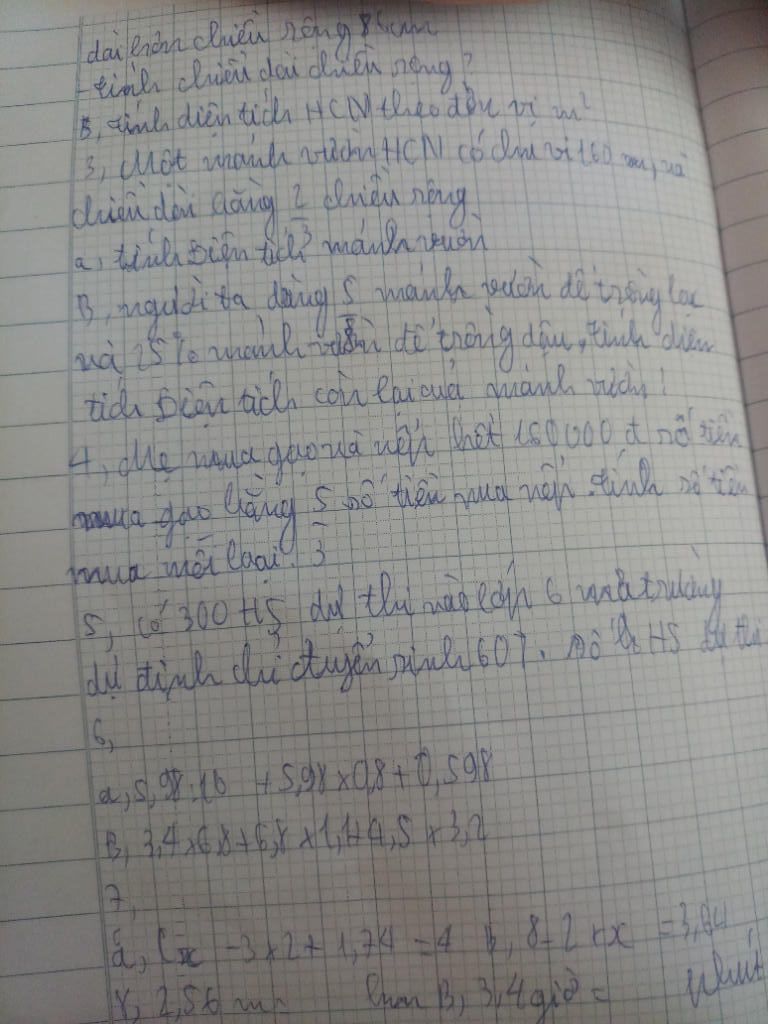 dài hơn chiều rộng 8 cm
- tính chiều dài chiều rộng?
B, tính diện tích HCN theo đơn vị m²
3, Một mảnh vườn HCN có chu vi 160 m, và
chiều dài bằng 2/3 chiều rộng
a, tính Diện tích mảnh vườn
B, người ta dùng 5/8 mảnh vườn để trồng lạc
và 25% mảnh vườn để trồng đậu, tính diên
tích Diện tích còn lại của mảnh vườn?
4, Mẹ mua gạo và nếp hết 160 000 đ số tiền
mua gạo bằng 5/3 số tiền mua nếp. tính số tiền
mua mỗi loại.
5, có 300 HS dự thi vào lớp 6 nhà trường
dự định chỉ tuyển sinh 60%. số HS dự thi
6,
a, 5,98:10 + 5,98 × 0,8 + 0,598
B, 3,4 × 6,8 + 6,8 × 1,1 + 4,5 × 3,2
7,
a, (x - 3 × 2 + 1,74 = 4 b, 8 - 2 × x = 3,84
8, 2,56 m = B, 3,4 giờ = phút